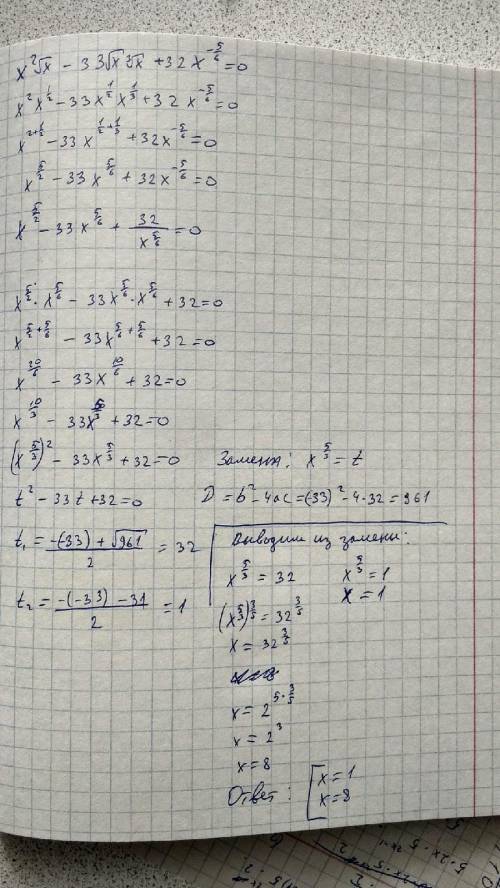 x²√x - 33√x ³√x + 32x^(-5/6) = 0
x² x^(1/2) - 33x^(1/2) x^(1/3) + 32x^(-5/6) = 0
x^(2+1/2) - 33x^(1/2+1/3) + 32x^(-5/6) = 0
x^(5/2) - 33x^(5/6) + 32x^(-5/6) = 0
x^(5/2) - 33x^(5/6) + 32/x^(5/6) = 0
x^(5/2) · x^(5/6) - 33x^(5/6) · x^(5/6) + 32 = 0
x^(5/2+5/6) - 33x^(5/6+5/6) + 32 = 0
x^(20/6) - 33x^(10/6) + 32 = 0
x^(10/3) - 33x^(5/3) + 32 = 0
(x^(5/3))² - 33x^(5/3) + 32 = 0
Замена: x^(5/3) = t
t² - 33t + 32 = 0
D = b² - 4ac = (-33)² - 4·32 = 961
t₁ = (-(-33) + √961)/2 = 32
t₂ = (-(-33) - 31)/2 = 1
Выводим из замены:
x^(5/3) = 32
(x^(5/3))^(3/5) = 32^(3/5)
x = 32^(3/5)
x = 2^(5·3/5)
x = 2³
x = 8
x^(5/3) = 1
x = 1
Ответ: [x = 1
x = 8